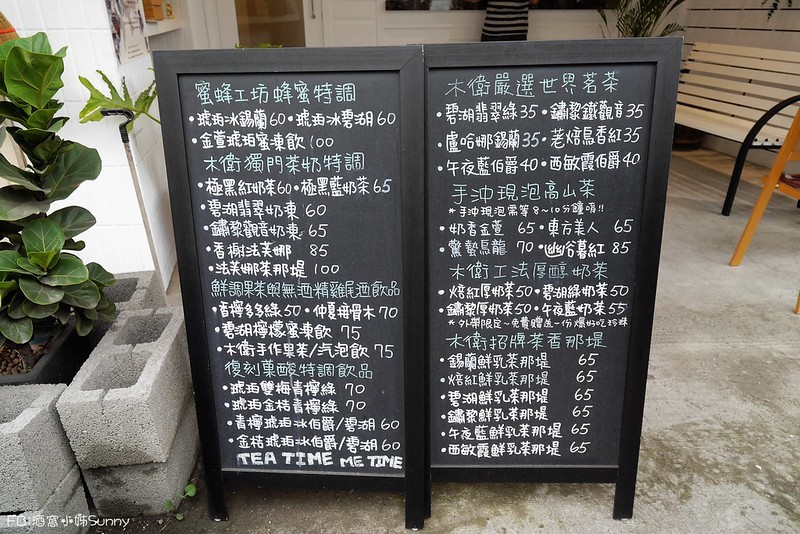 蜜蜂工坊蜂蜜特調
•琥珀冰錫蘭60 •琥珀冰碧湖60
•金萱琥珀蜜凍飲 100
木衛獨門茶奶特調
•極黑紅奶茶60 •極黑藍奶茶65
•碧湖翡翠奶凍 60
•鏽黎觀音奶凍 65
•香榭法芙娜 85
•法芙娜茶那堤 100
鮮調果茶與無酒精雞尾酒飲品
•青檸多多綠50 •仲夏接骨木70
•碧湖檸檬蜜凍飲 75
•木衛手作果茶/汽泡飲 75
復刻菓酸特調飲品
•琥珀雙梅青檸綠 70
•琥珀金桔青檸綠 70
•青檸琥珀冰伯爵/碧湖60
•金桔琥珀冰伯爵/碧湖60
TEA TIME ME TIME
木衛嚴選世界茗茶
•碧湖翡翠綠35 •鏽黎鐵觀音35
•盧哈娜錫蘭35 •荖焙烏香紅35
•午夜藍伯爵40 •西敏霞伯爵40
手沖現泡高山茶
*手沖現泡需等8~10分鐘唷!!
•奶香金萱 65 •東方美人 65
•驚蟄烏龍 70 •幽谷暮紅 85
木衛工法厚醇奶茶
•焙紅厚奶茶50 •碧湖綠奶茶50
•鏽黎厚奶茶50 •午夜藍奶茶55
*外帶限定~免費贈送一份爆好吃珍珠
木衛招牌茶香那堤
•錫蘭鮮乳茶那堤 65
•焙紅鮮乳茶那堤 65
•碧湖鮮乳茶那堤 65
•鏽黎鮮乳茶那堤 65
•午夜藍鮮乳茶那堤 65
•西敏霞鮮乳茶那堤 65
FB:酒窩小姊Sunny